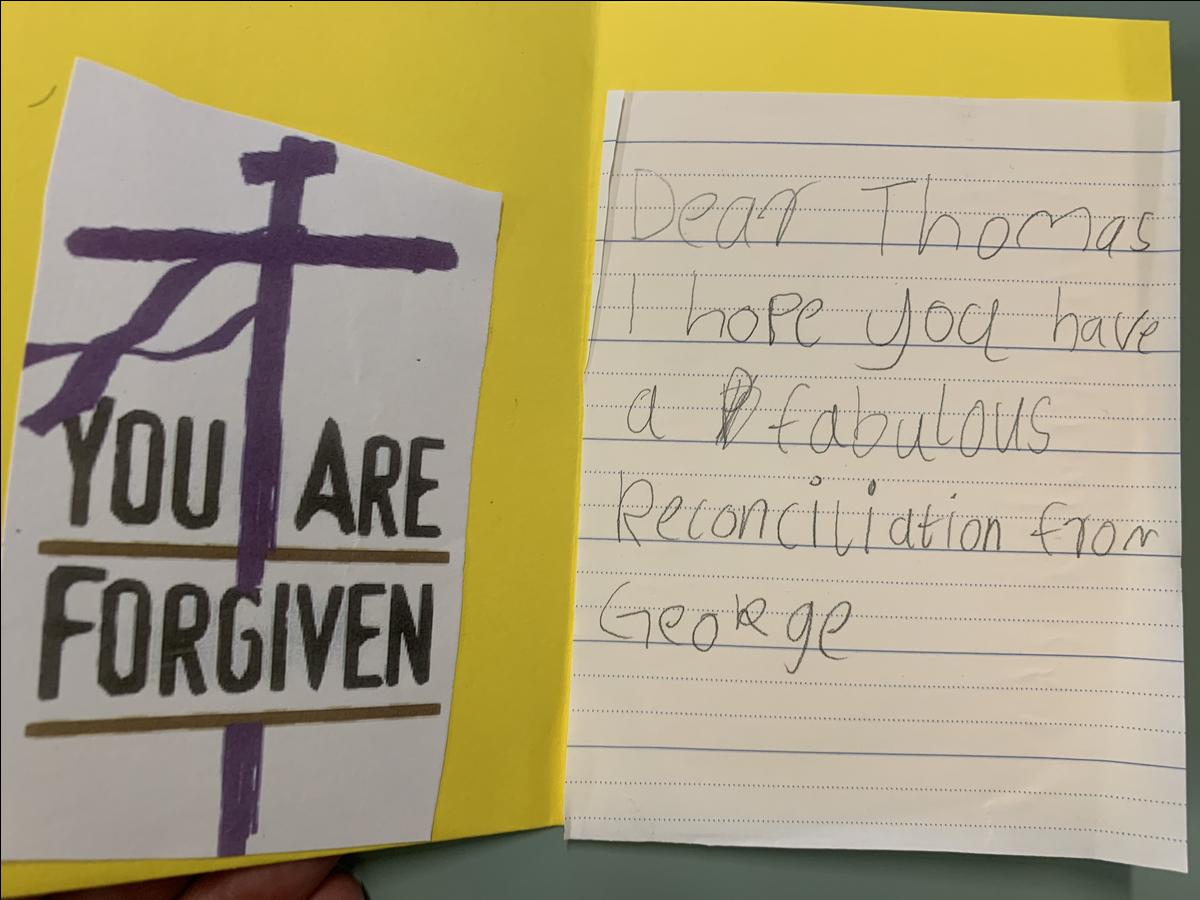 YOU ARE
FORGIVEN
Dear Thomas
I hope you have
a fabulous
Reconciliation from
George